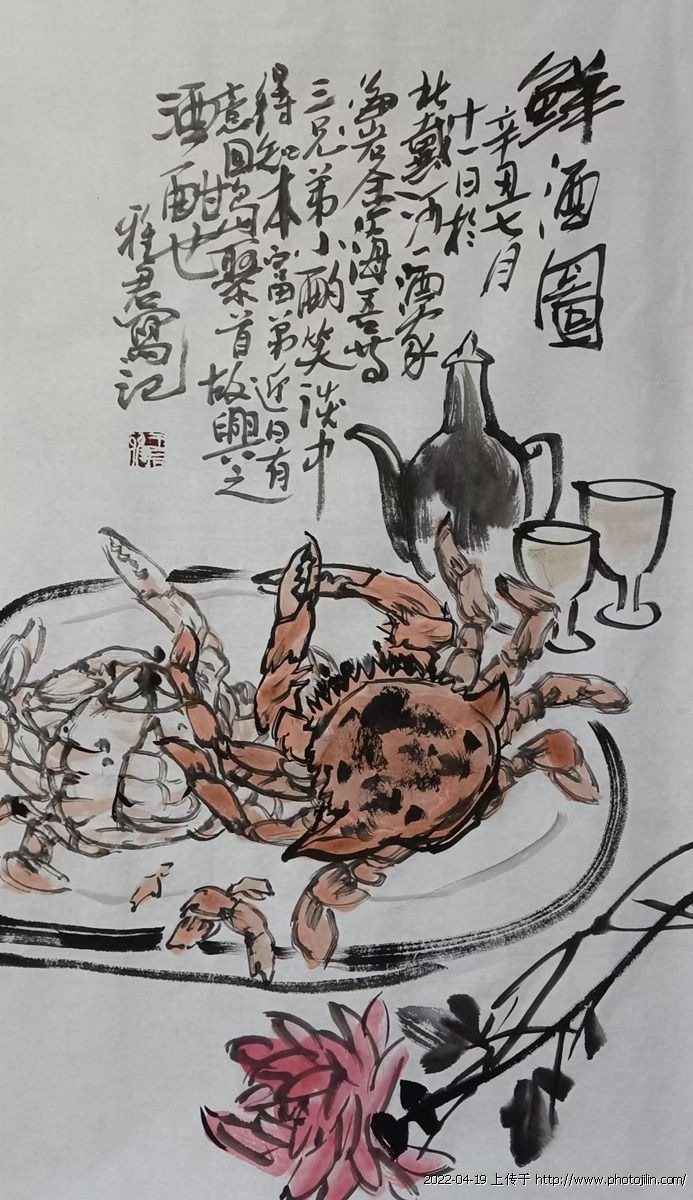 鮮酒圖
辛丑七月
十一日於
北戴河一酒家
岩金海吾等
三兄弟小酌笑談中
得知本富弟近日有
意回島聚首故興之
酒酣也
雅君寫记
2022-04-19 上传于 http://www.photojilin.com/